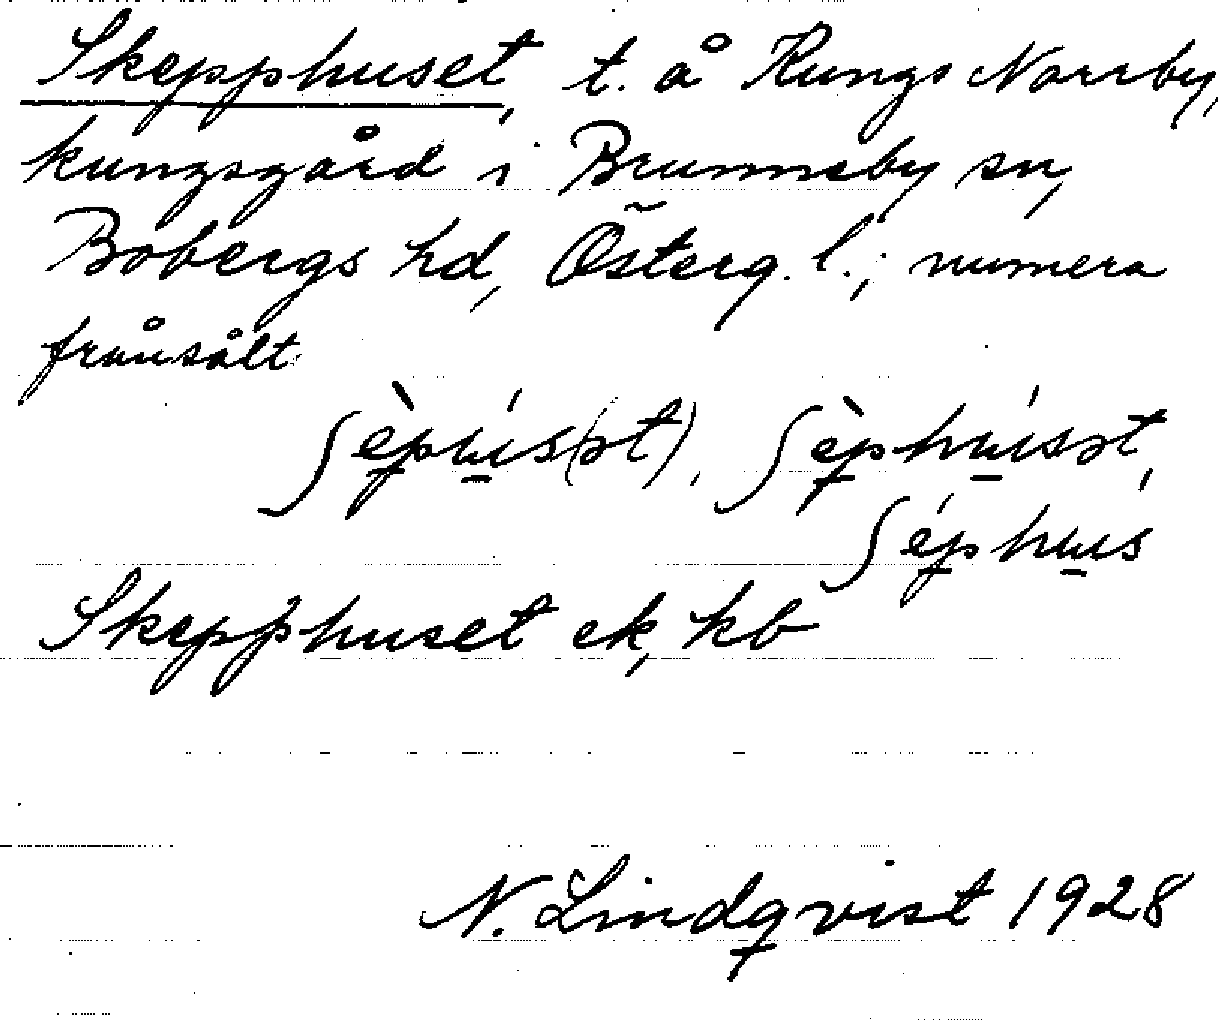 Skepphuset, t. å Kungs Norrby,
kungsgård i Brunneby sn,
Bobergs hd, Österg. l.; numera
frånsålt
ʃèpu̲ís(ət), ʃèphu̲ísət,
ʃéphu̲s
Skepphuset ek, kb
N. Lindqvist 1928